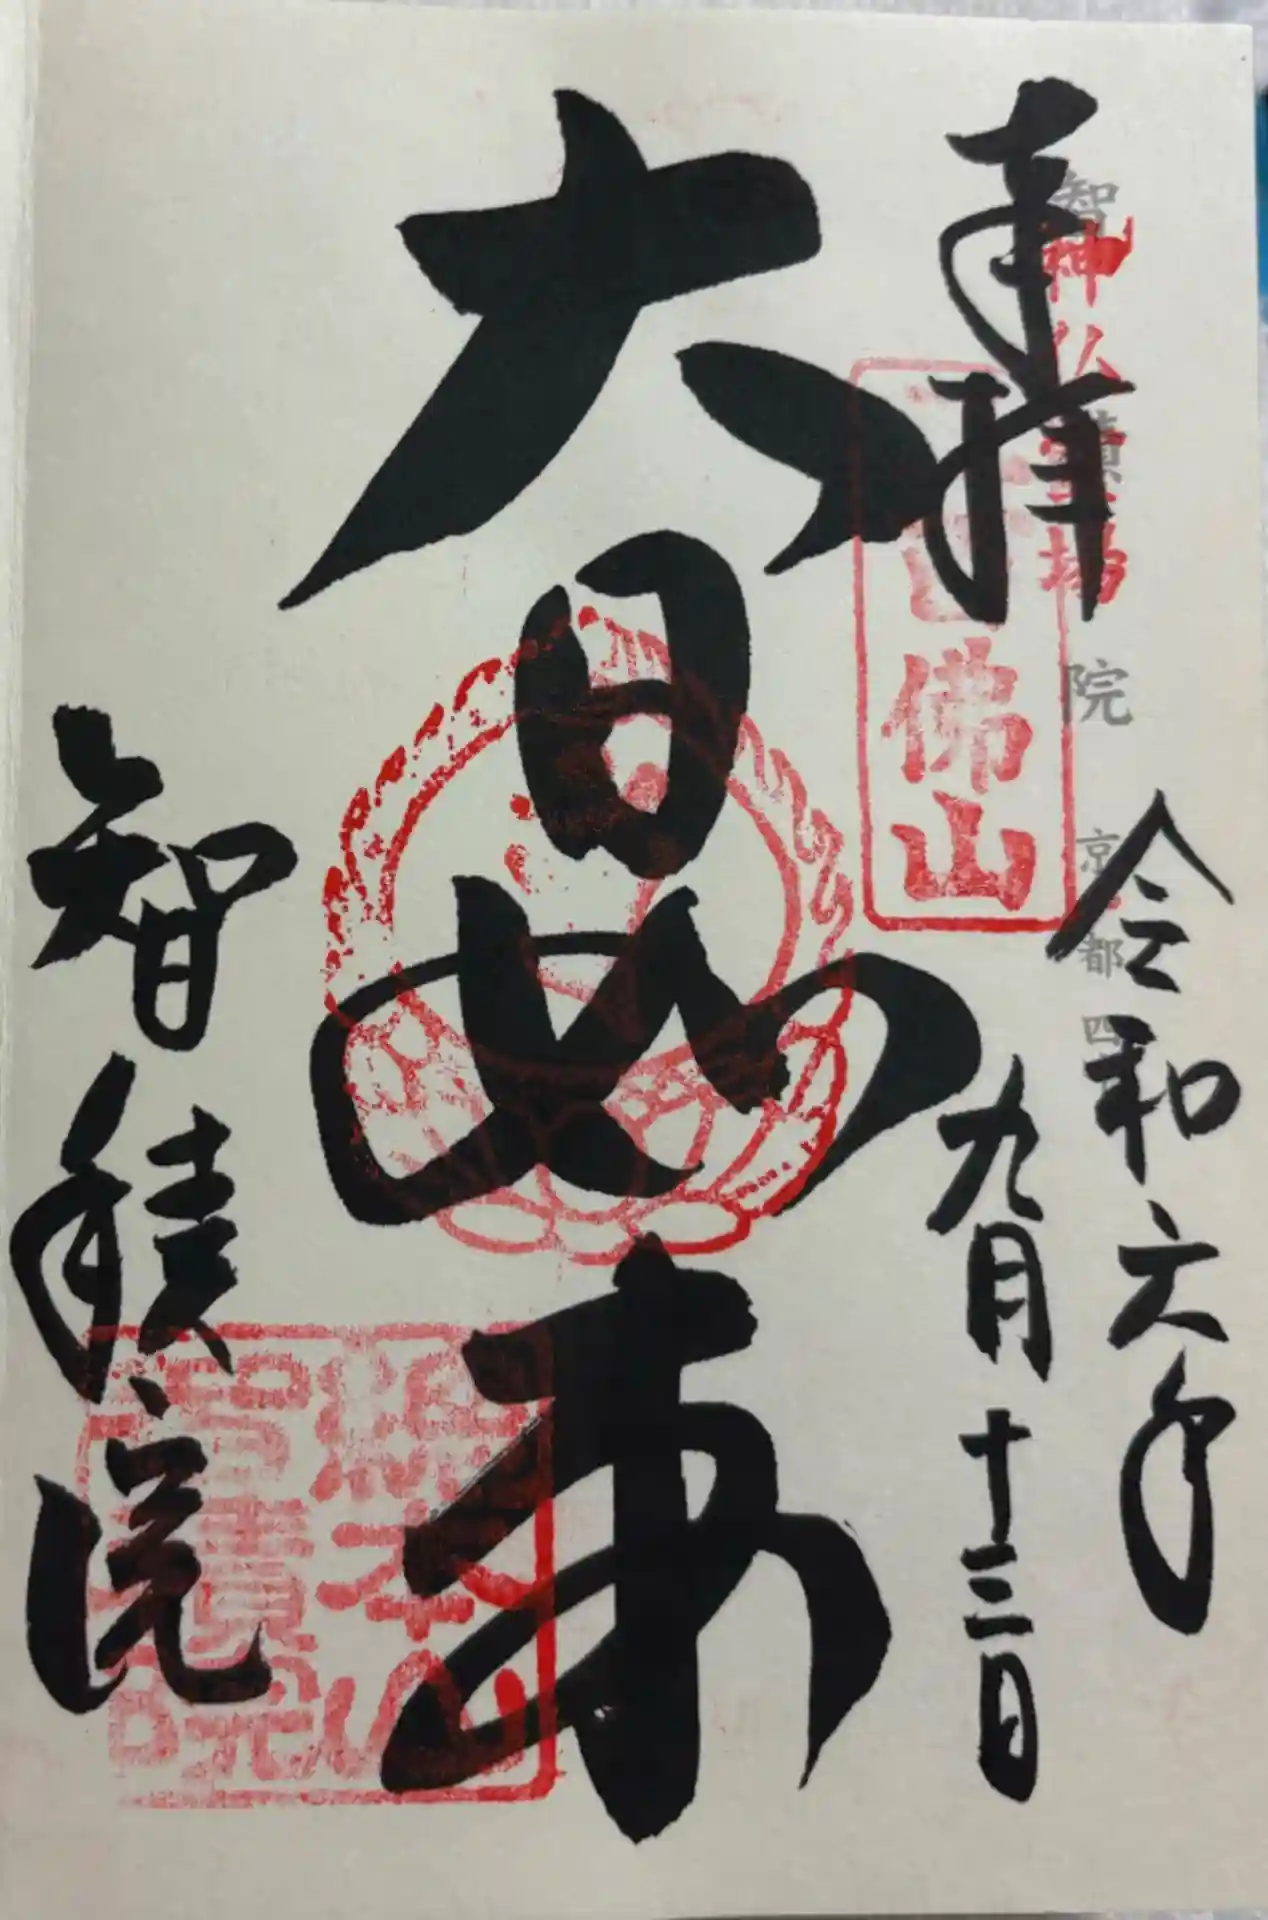 奉拝
智積院 京都 四
神仏霊場
令和六年
九月十三日
佛山
大日如来
智積院
総本山
智積院